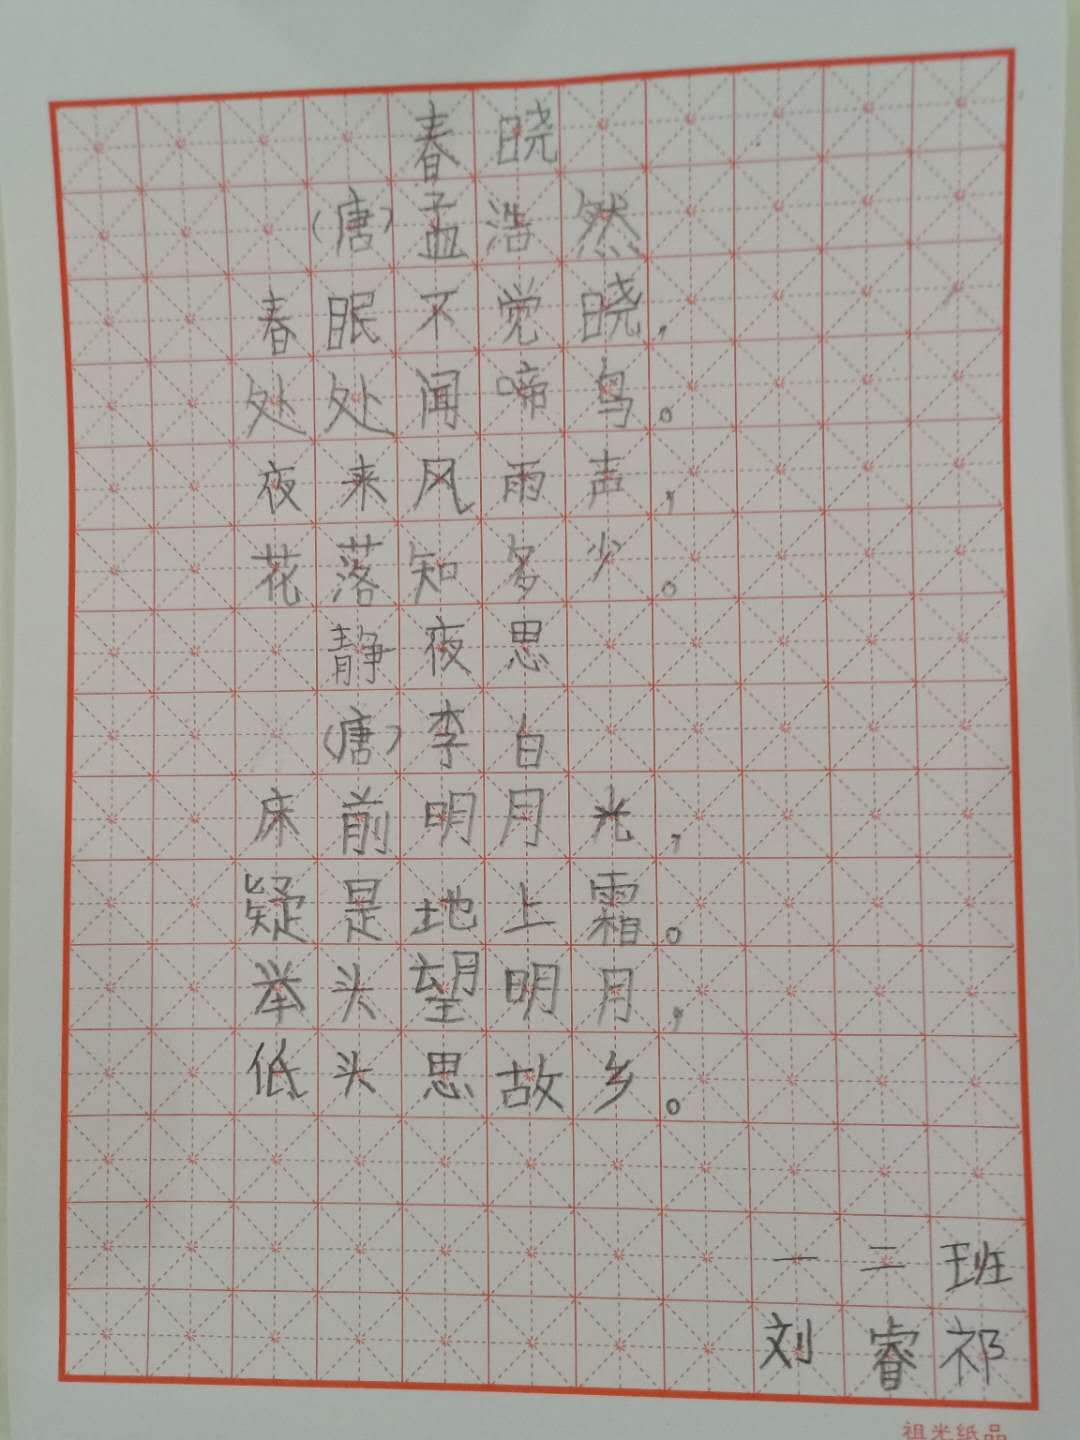 春晓
（唐）孟浩然
春眠不觉晓，
处处闻啼鸟。
夜来风雨声，
花落知多少。
静夜思
（唐）李白
床前明月光，
疑是地上霜。
举头望明月，
低头思故乡。
一二班
刘睿祁
祖光纸品